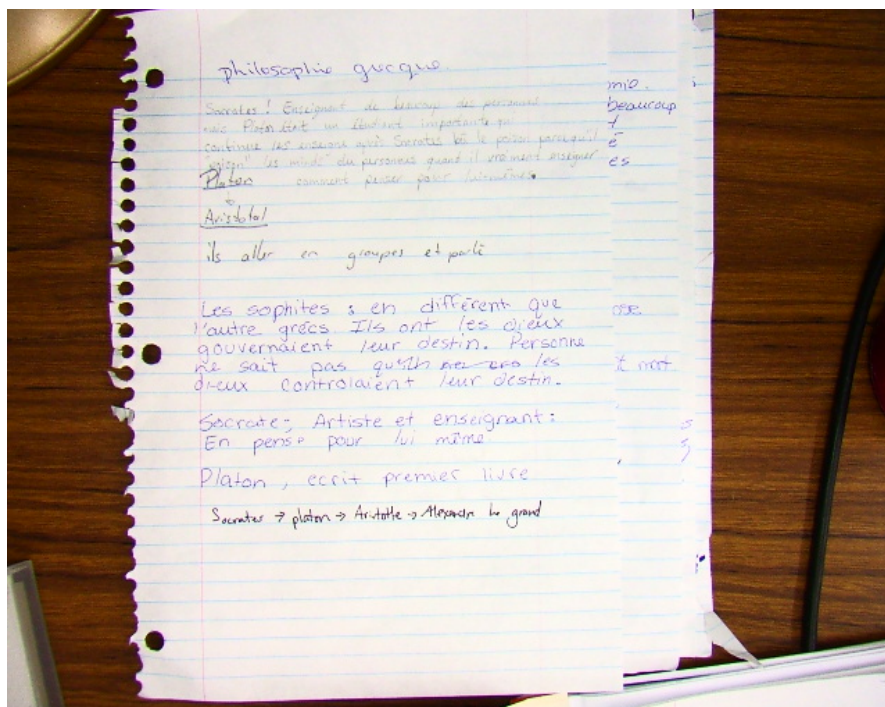 philosophie grecque
Socrates! Enseignant de beaucoup des personnes
mais Platon était un étudiant importante qui
continue les enseigns après Socrates bà le poison parcequ'il
les minds du personnes quand il vraiment enseigner
Platon comment penser pour lui-mêmes.
Aristotal
ils aller en groupes et parlé
Les sophites : en différent que
l'autre grécs Ils ont les dieux
gouvernaient leur destin. Personne
ne sait pas les
dieux controlaient leur destin.
Socrate; Artiste et enseignant:
En pense pour lui même.
Platon, ecrit premier livre
Socrates → platon → Aristotle → le grand
mie.
beaucoup
é
es
mot
s